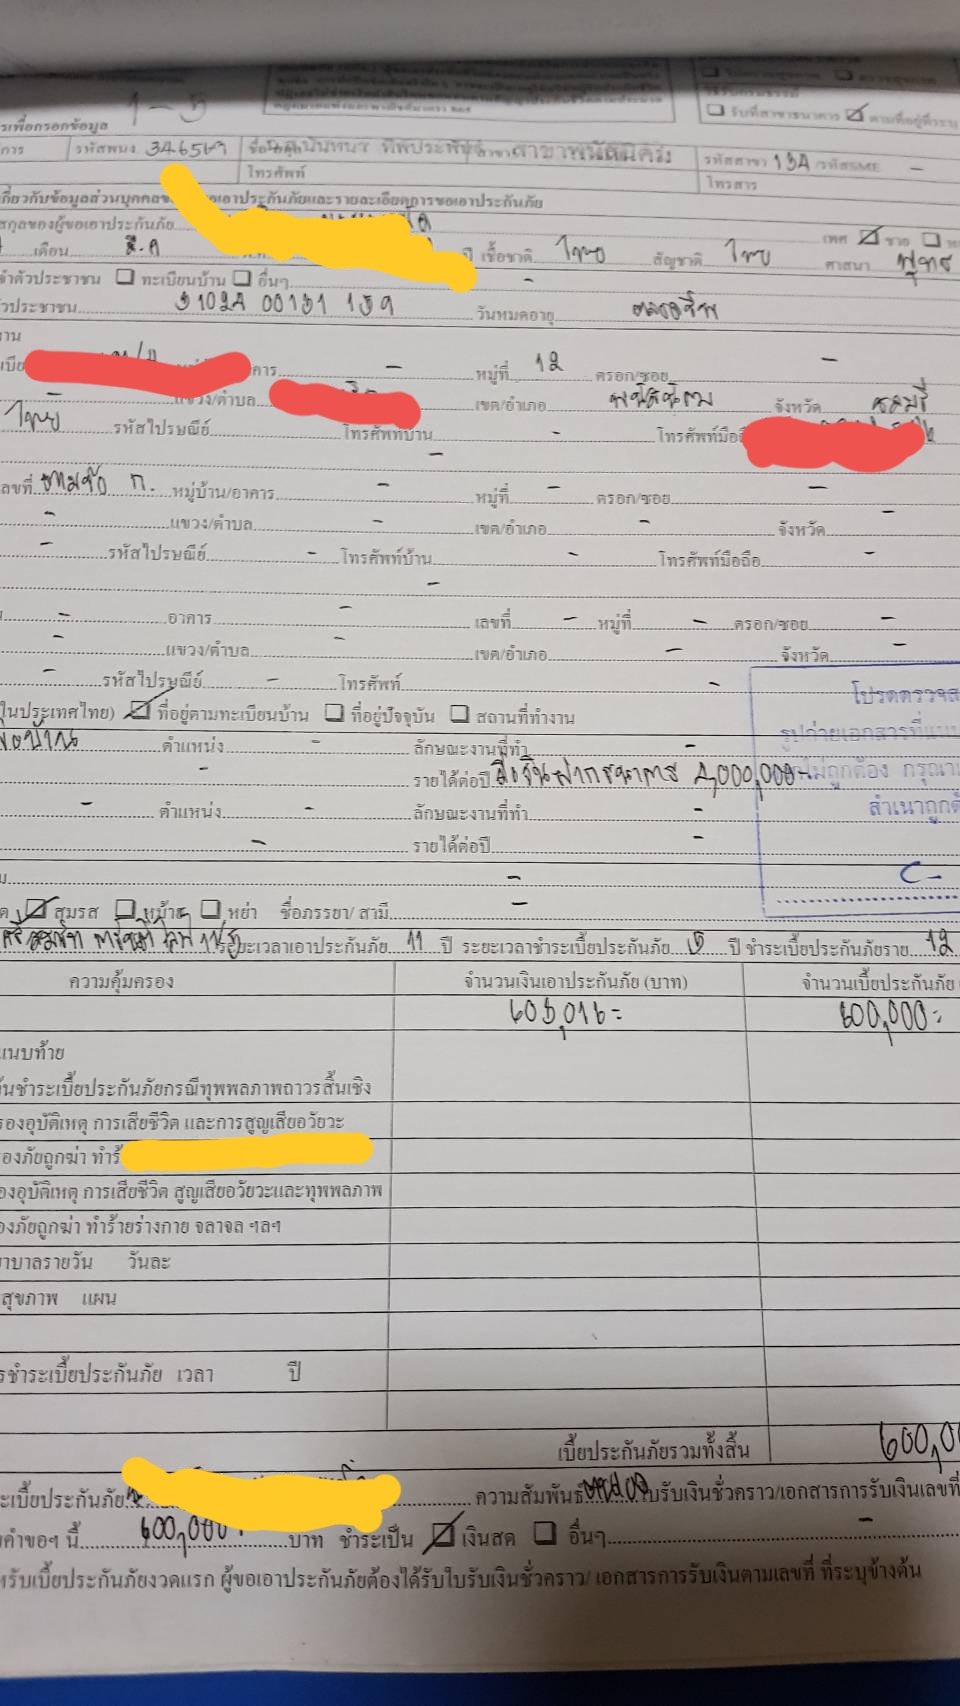 1-5
รเพื่อกรอกข้อมูล
รับที่สาขาธนาคาร ตามที่อยู่ที่ระบุ
การ รหัสพนง สาขาพนัสนิคม รหัสสาขา 13A /รหัสSME -
โทรศัพท์ โทรสาร
กี่ยวกับข้อมูลส่วนบุคคล อเอาประกันภัยและรายละเอียดการขอเอาประกันภัย
สกุลของผู้ขอเอาประกันภัย เพศ ชาย
เดือน มี.ค ปี เชื้อชาติ ไทย สัญชาติ ไทย ศาสนา พุทธ
จำตัวประชาชน ทะเบียนบ้าน อื่นๆ -
วประชาชน วันหมดอายุ ตลอดชีพ
าน
เบีย คาร - หมู่ที่ 12 ตรอก/ซอย -
แขวง/ตำบล เขต/อำเภอ พนัสนิคม จังหวัด ชลบุรี
ไทย รหัสไปรษณีย์ โทรศัพท์บ้าน - โทรศัพท์มือถื
-
ลขที่ หมู่บ้าน/อาคาร - หมู่ที่ - ตรอก/ซอย -
- แขวง/ตำบล - เขต/อำเภอ - จังหวัด -
- รหัสไปรษณีย์ - โทรศัพท์บ้าน - โทรศัพท์มือถือ -
-
- อาคาร - เลขที่ - หมู่ที่ - ตรอก/ซอย -
- แขวง/ตำบล - เขต/อำเภอ - จังหวัด -
- รหัสไปรษณีย์ - โทรศัพท์ -
โปรดตรวจส
ในประเทศไทย) ที่อยู่ตามทะเบียนบ้าน ที่อยู่ปัจจุบัน สถานที่ทำงาน
รูปถ่ายเอกสารที่แนบ
ตำแหน่ง - ลักษณะงานที่ทำ -
- รายได้ต่อปี 2,000,000-
ไม่ถูกต้อง กรุณา
- ตำแหน่ง - ลักษณะงานที่ทำ -
สำเนาถูกต้
- รายได้ต่อปี -
-
สมรส หม้าย หย่า ชื่อภรรยา/ สามี -
ระยะเวลาเอาประกันภัย 11 ปี ระยะเวลาชำระเบี้ยประกันภัย 5 ปี ชำระเบี้ยประกันภัยราย 12
ความคุ้มครอง จำนวนเงินเอาประกันภัย (บาท) จำนวนเบี้ยประกันภัย
605,016= 600,000=
แนบท้าย
ว้นชำระเบี้ยประกันภัยกรณีทุพพลภาพถาวรสิ้นเชิง
รองอุบัติเหตุ การเสียชีวิต และการสูญเสียอวัยวะ
องภัยถูกฆ่า ทำร้
องอุบัติเหตุ การเสียชีวิต สูญเสียอวัยวะและทุพพลภาพ
องภัยถูกฆ่า ทำร้ายร่างกาย จลาจล ฯลฯ
ยาบาลรายวัน วันละ
สุขภาพ แผน
รชำระเบี้ยประกันภัย เวลา ปี
เบี้ยประกันภัยรวมทั้งสิ้น 600,0
ะเบี้ยประกันภัย ความสัมพันธ์ ใบรับเงินชั่วคราว/เอกสารการรับเงินเลขที่
คำขอฯ นี้ 600,000 บาท ชำระเป็น เงินสด อื่นๆ -
หรับเบี้ยประกันภัยงวดแรก ผู้ขอเอาประกันภัยต้องได้รับใบรับเงินชั่วคราว/ เอกสารการรับเงินตามเลขที่ ที่ระบุข้างต้น